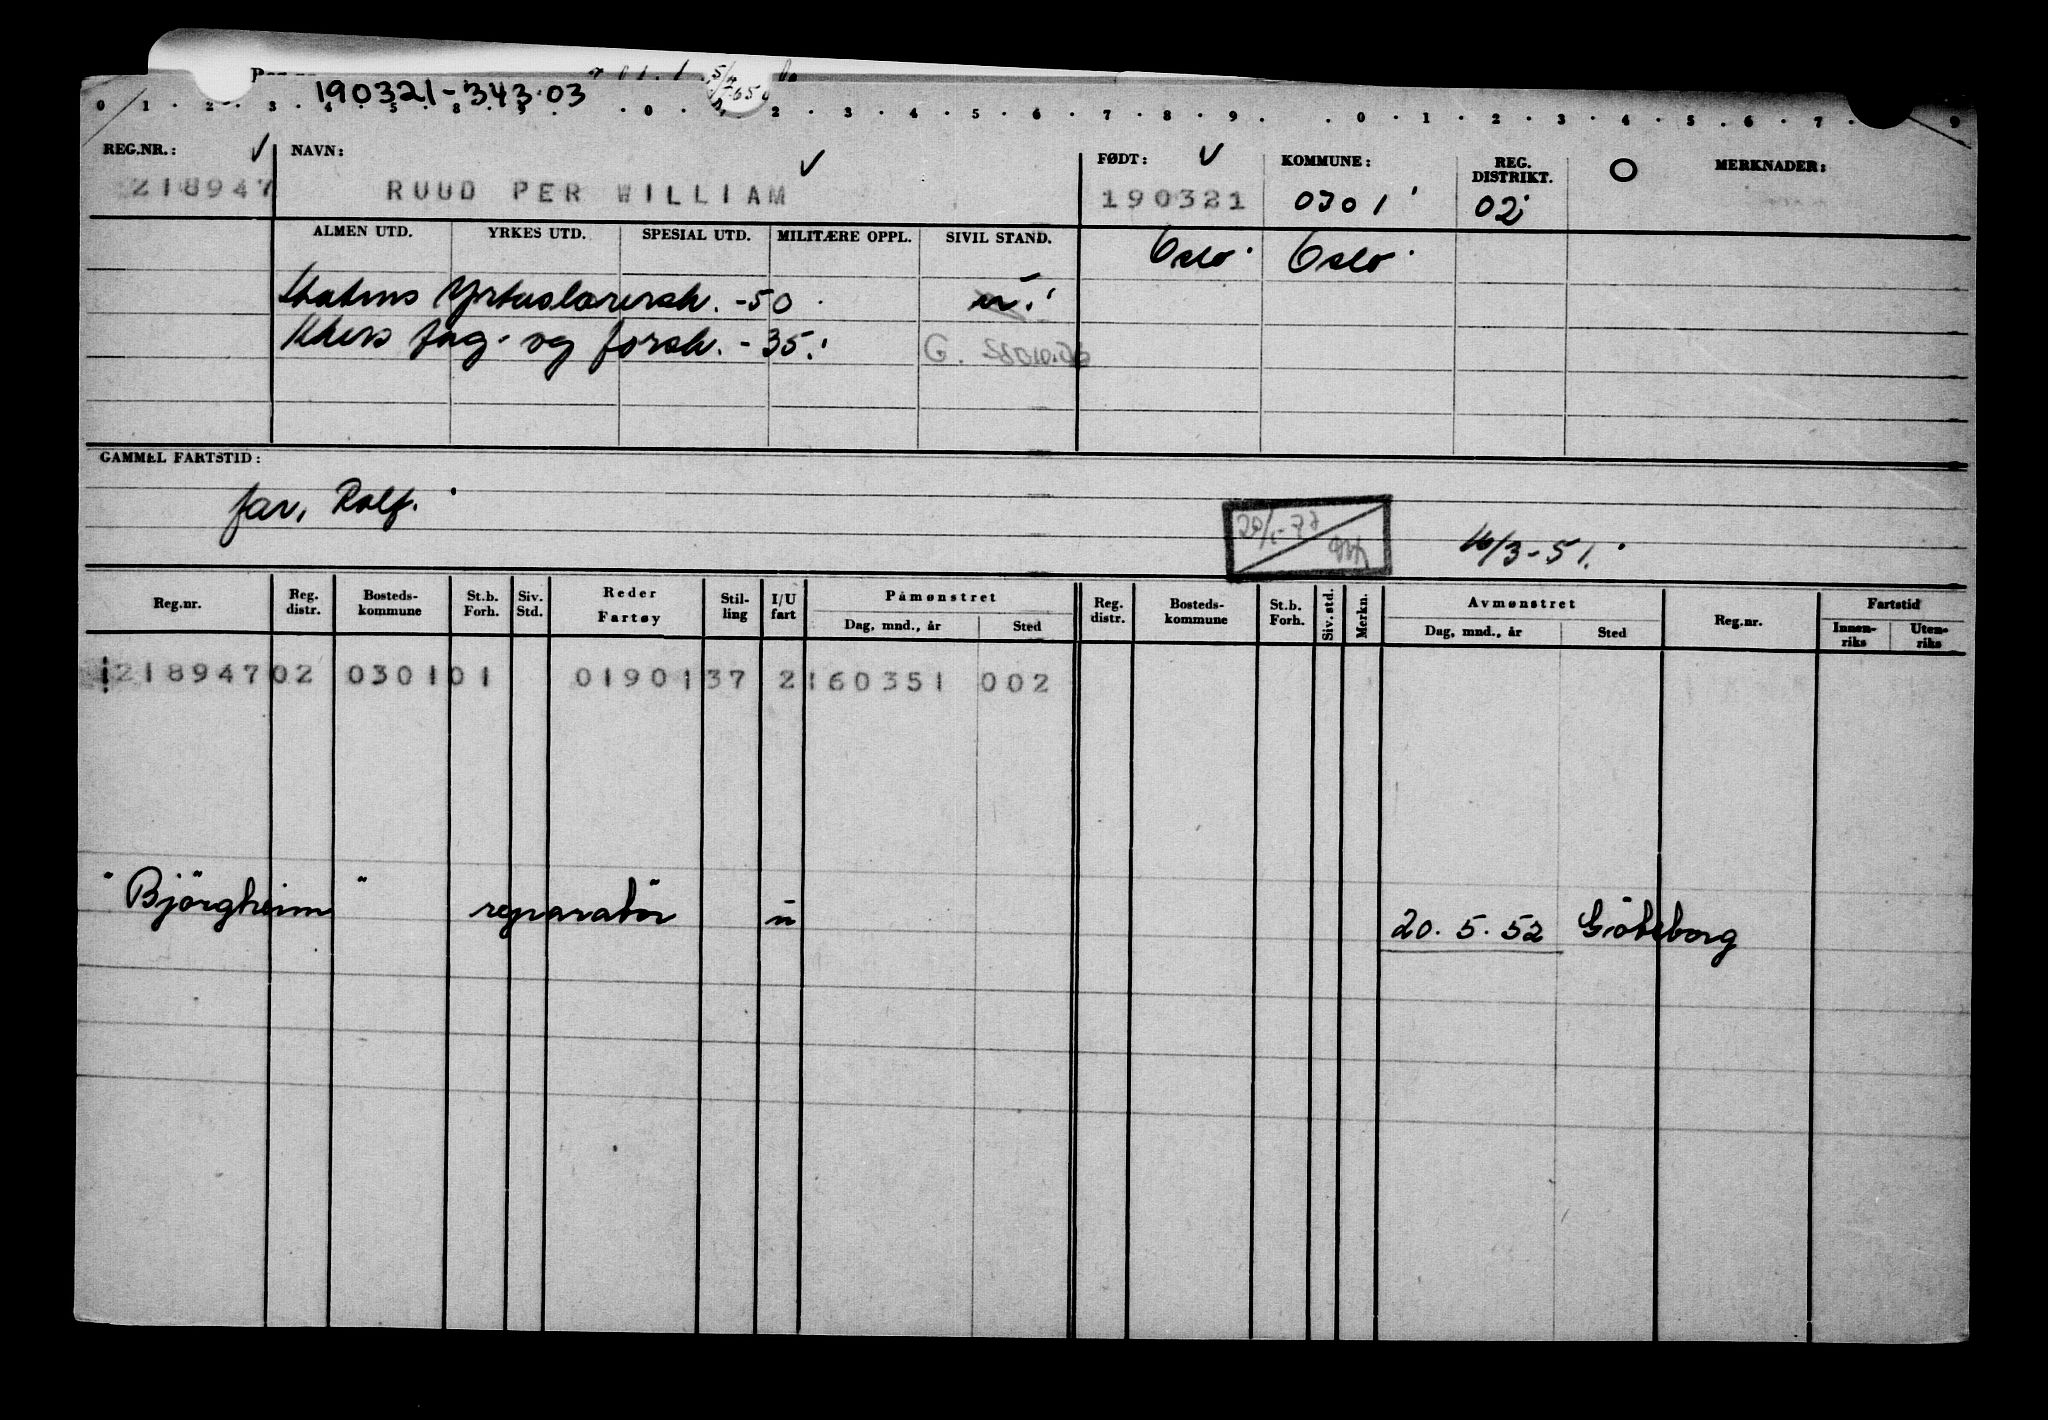 190321-343.03
0 1 2 3 4 5 8 9 0 2 3 4 5 6 7 8 9 0 1 2 3 4 5 6 7 9
REG.NR.: NAVN: FØDT: KOMMUNE: REG. DISTRIKT. MERKNADER:
218947 RUUD PER WILLIAM 190321 0301 02
ALMEN UTD. YRKES UTD. SPESIAL UTD. MILITÆRE OPPL. SIVIL STAND. Oslo Oslo
Statens Yrkeslærersk. -50 u.
fag- og forsk. - 35. G.
GAMMEL FARTSTID:
far, Rolf.
16/3-51.
Reg.nr. Reg. distr. Bosteds-kommune St.b. Forh. Siv. Std. Reder Fartøy Stil-ling I/U fart Påmønstret Dag, mnd., år Sted Reg. distr. Bosteds-kommune St.b. Forh. Siv. std. Merkn. Avmønstret Dag, mnd., år Sted Reg.nr. Fartstid Innen-riks Uten-riks
218947 02 0301 01 0190137 2 160351 002
"Bjørgheim" reparatør u 20.5.52 Göteborg